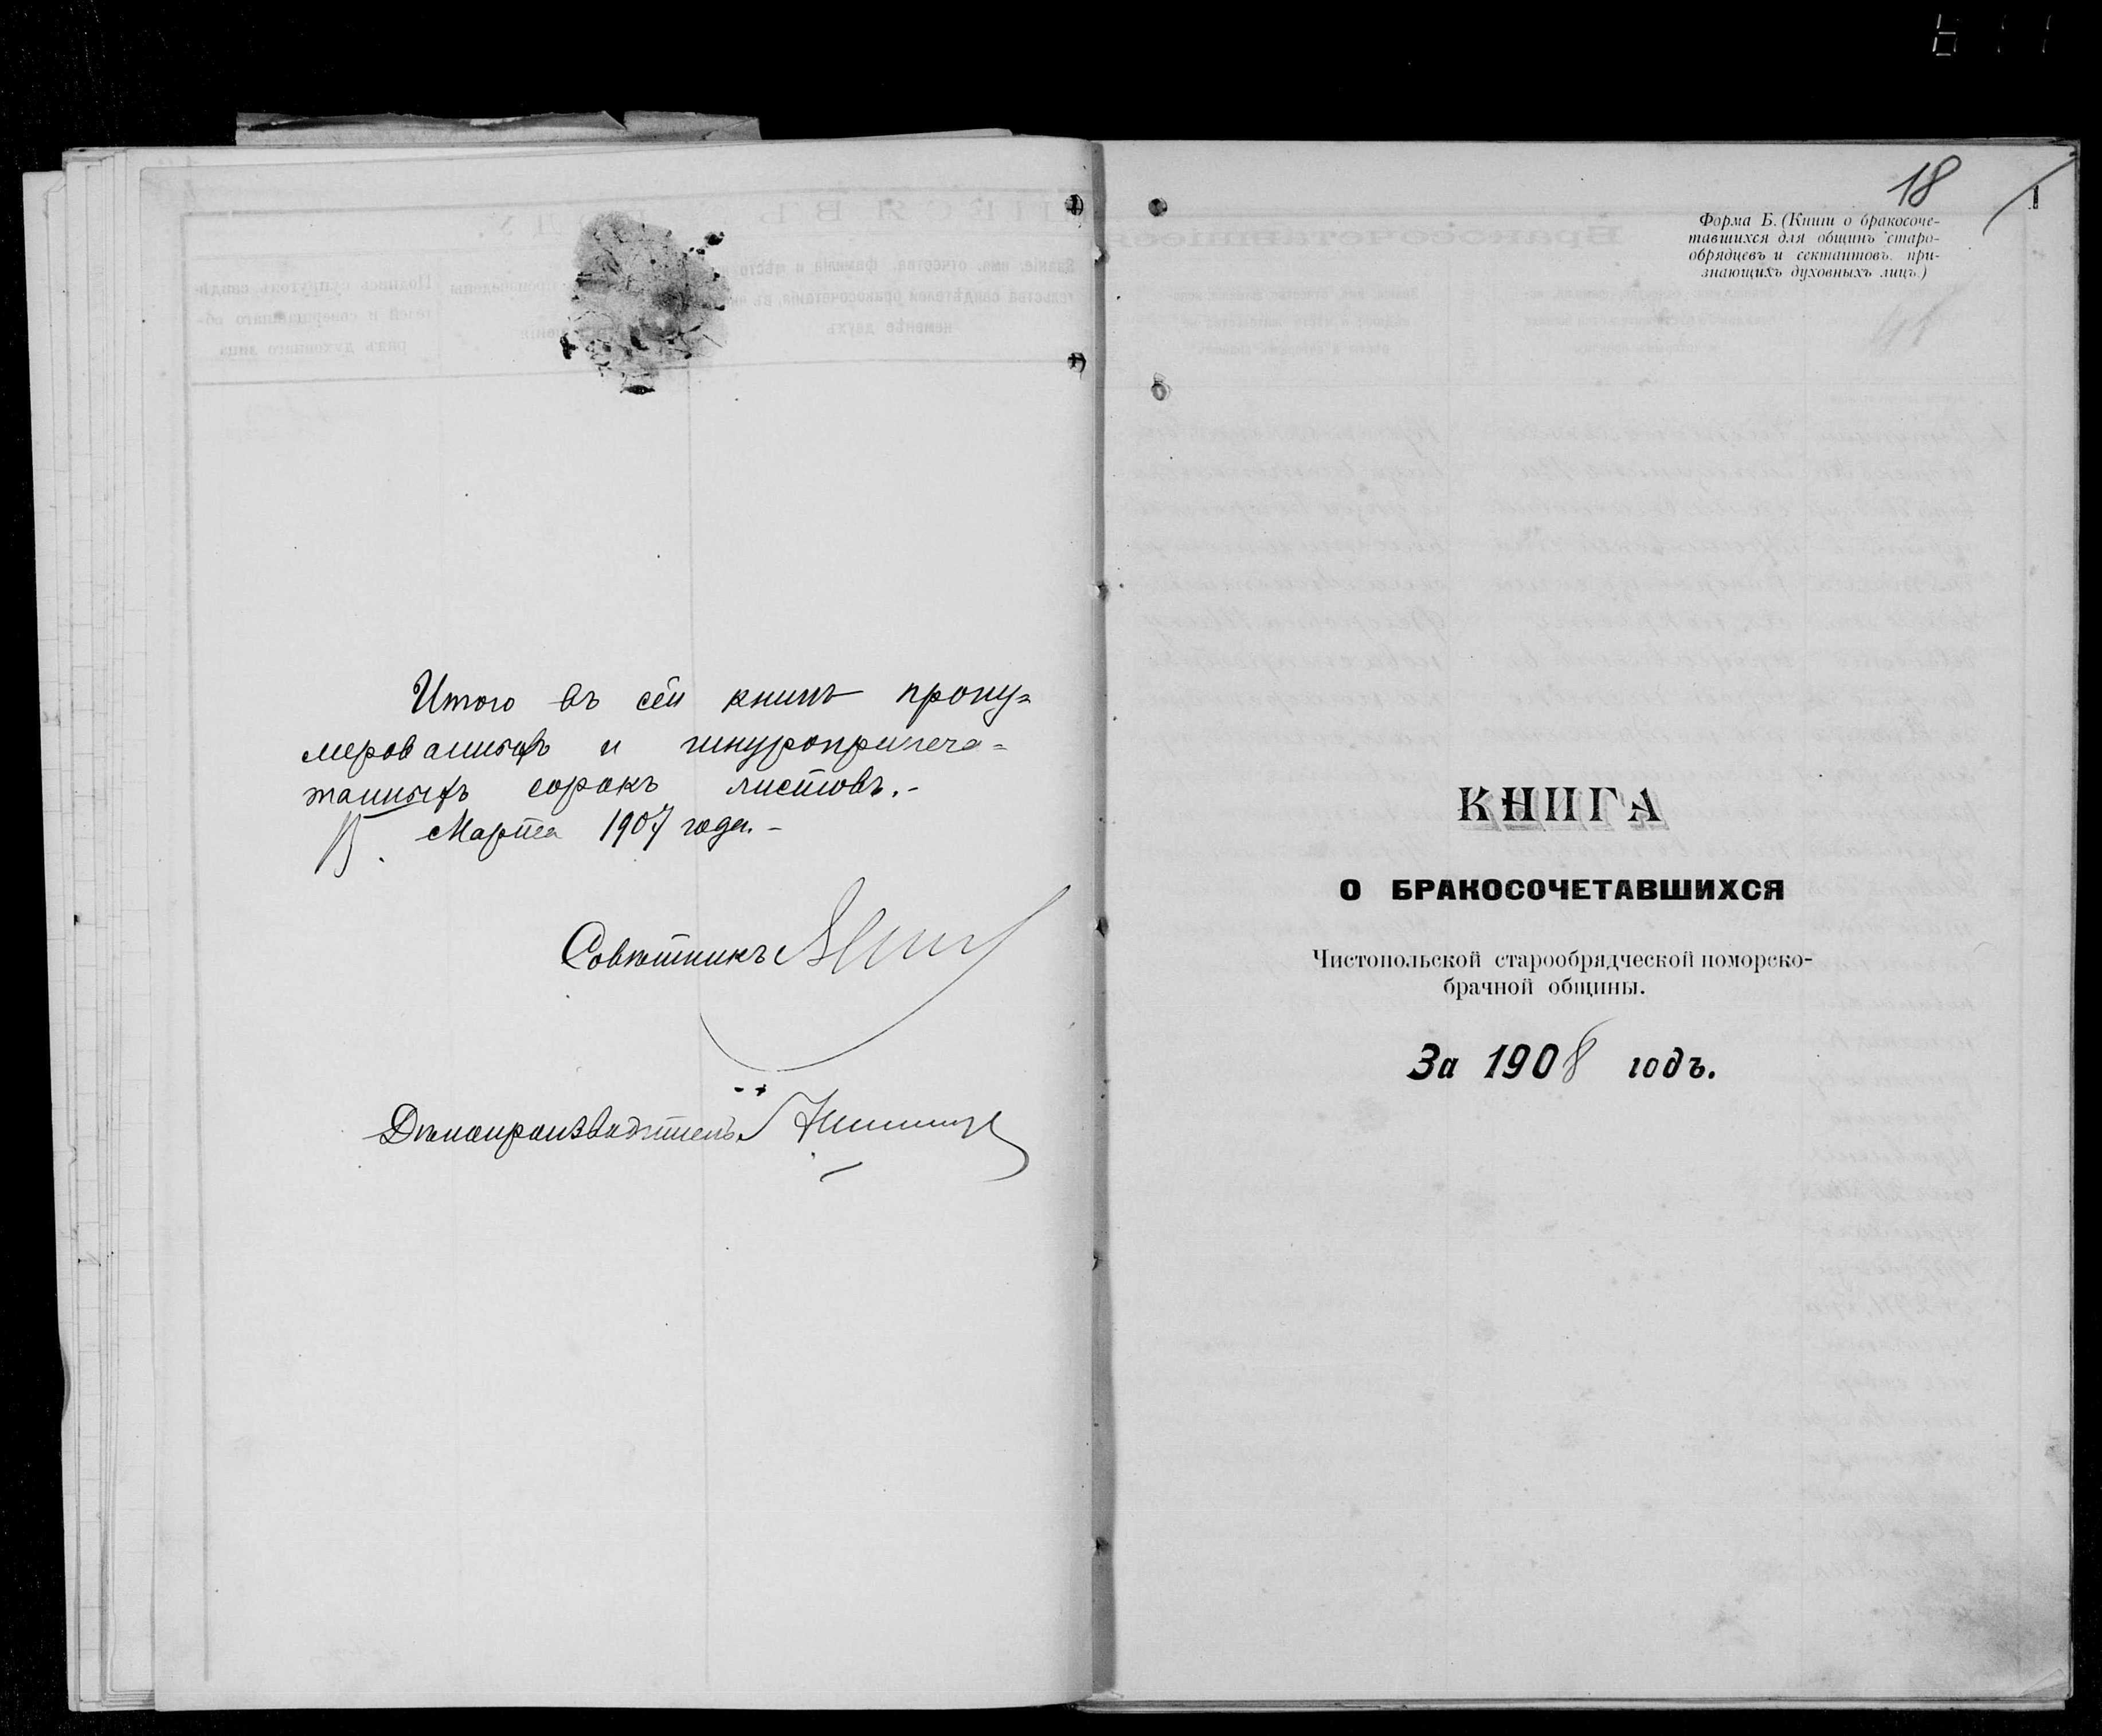 Итого въ сей книгѣ прону=
мерованныхъ и шнуроприпеча=
танныхъ сорокъ листовъ.-
Марта 1907 года.-
Совѣтникъ
Дѣлопроизводитель
18
1
Форма Б. (Книги о бракосоче-
тавшихся для общинъ старо-
обрядцевъ и сектантовъ, при-
знающихъ духовныхъ лицъ.)
КНИГА
О БРАКОСОЧЕТАВШИХСЯ
Чистопольской старообрядческой поморско-
брачной общины.
За 1908 годъ.